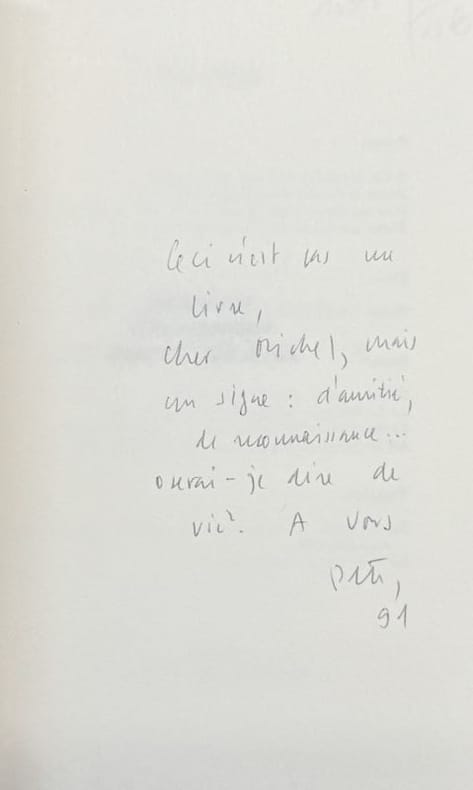 Ceci n'est pas un
livre,
cher Michel, mais
un signe : d'amitié,
de reconnaissance...
oserai-je dire de
vie? A vous
91